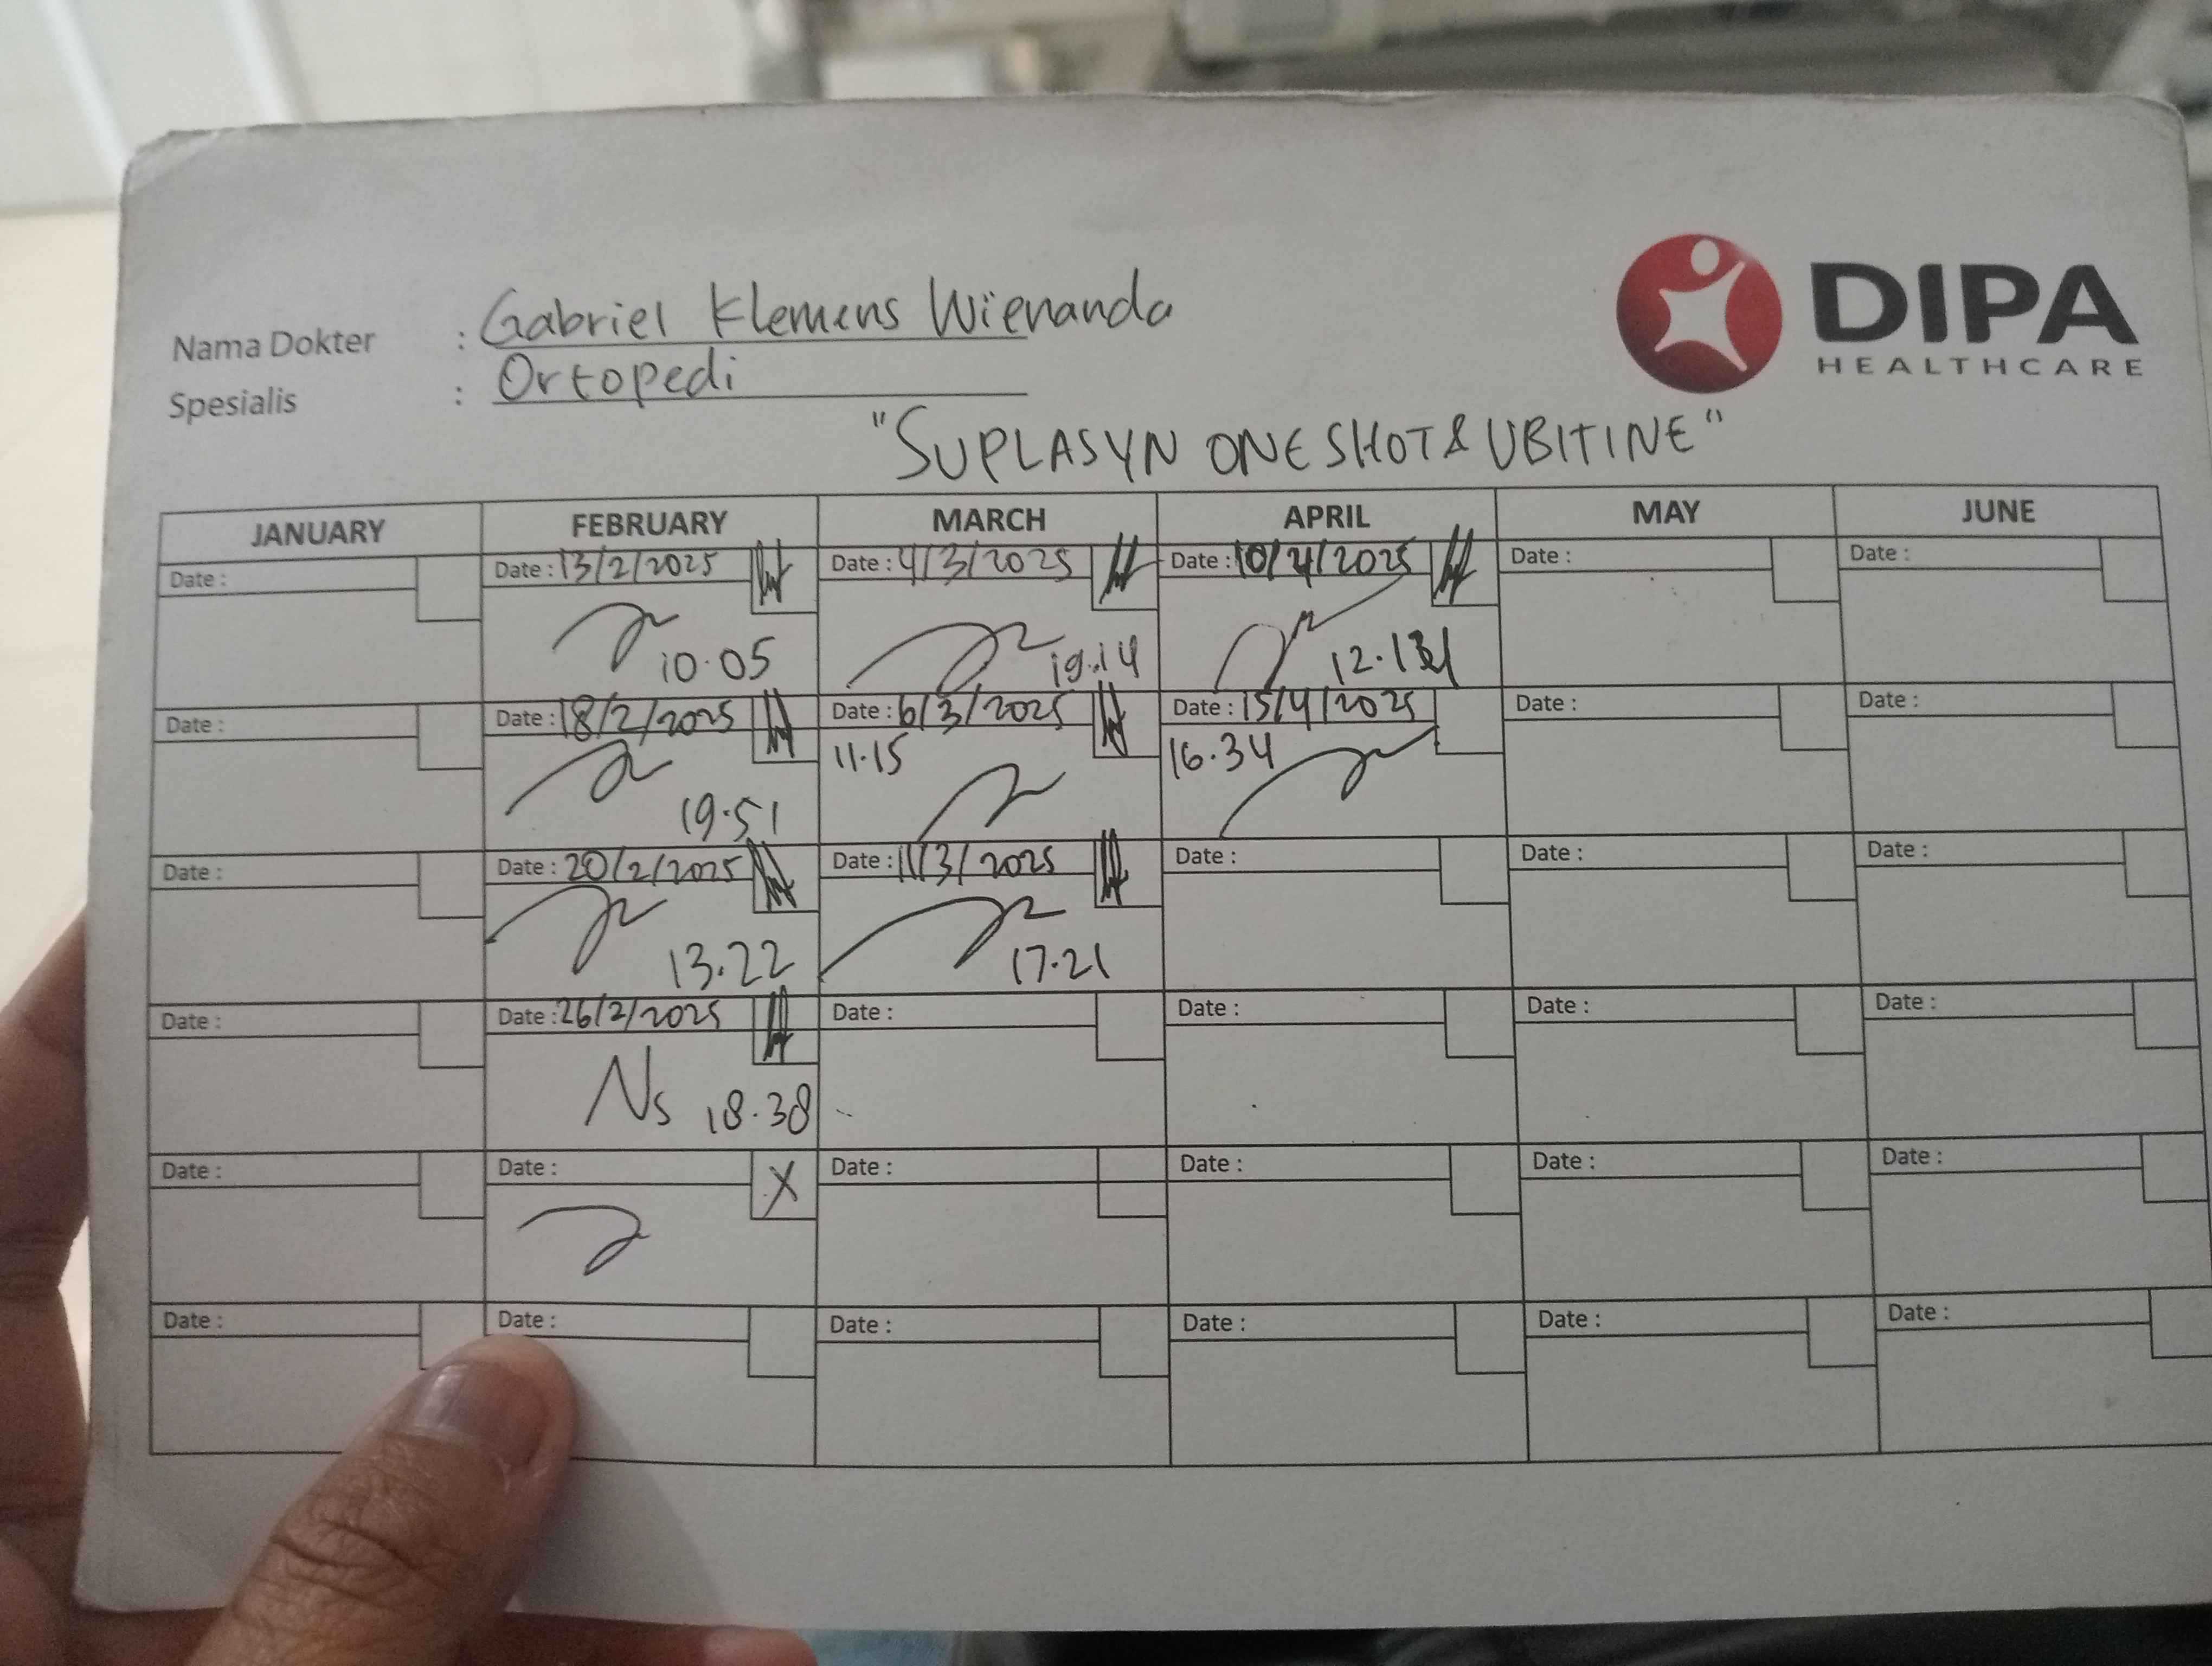 Nama Dokter : Gabriel Klemens Wienanda
Spesialis : Ortopedi
DIPA
HEALTHCARE
"SUPLASYN ONE SHOT & UBITINE"
JANUARY FEBRUARY MARCH APRIL MAY JUNE
Date : Date : 13/2/2025 Date : 4/3/2025 Date : 10/4/2025 Date : Date :
10.05 19.14
Date : Date : 18/2/2025 Date : 6/3/2025 Date : 15/4/2025 Date : Date :
19.51 11.15 16.34
Date : Date : 20/2/2025 Date : 11/3/2025 Date : Date : Date :
13.22 17.21
Date : Date : 26/2/2025 Date : Date : Date : Date :
Ns 18.38
Date : Date : X Date : Date : Date : Date :
Date : Date : Date : Date : Date : Date :